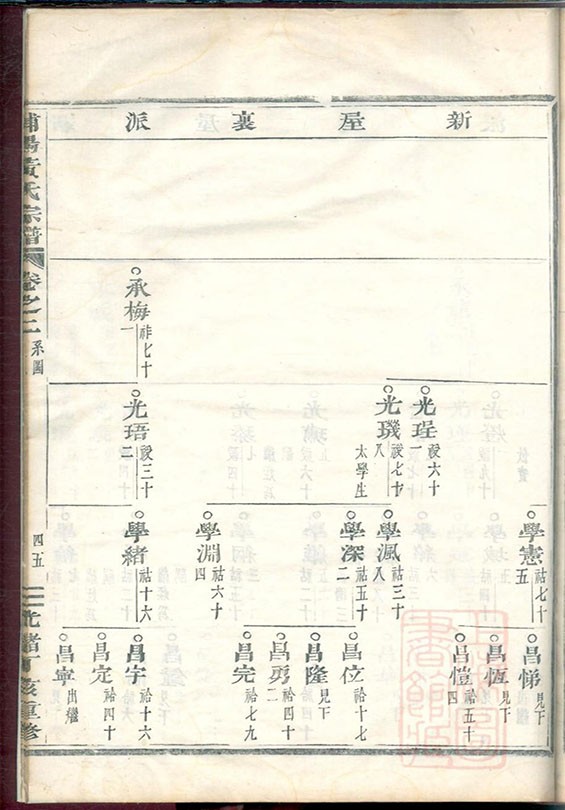 新屋裏派
承梅 祚七十一
光珵 祋六十一
光璣 祋七十八 太學生
光琣 祋三十二
學憲 祜七十五
學渢 祜三十八
學深 祜五十二
學淵 祜六十四
學緒 祜十六
昌悌 見下
昌恆 見下
昌愷 祫五十四
昌位 祫十七
昌隆 見下
昌勇 祫四十二
昌完 祫七九
昌宇 祫十六
昌定 祫四十
昌寧 出繼
黃氏宗譜
卷之二 系圖
四五
重修